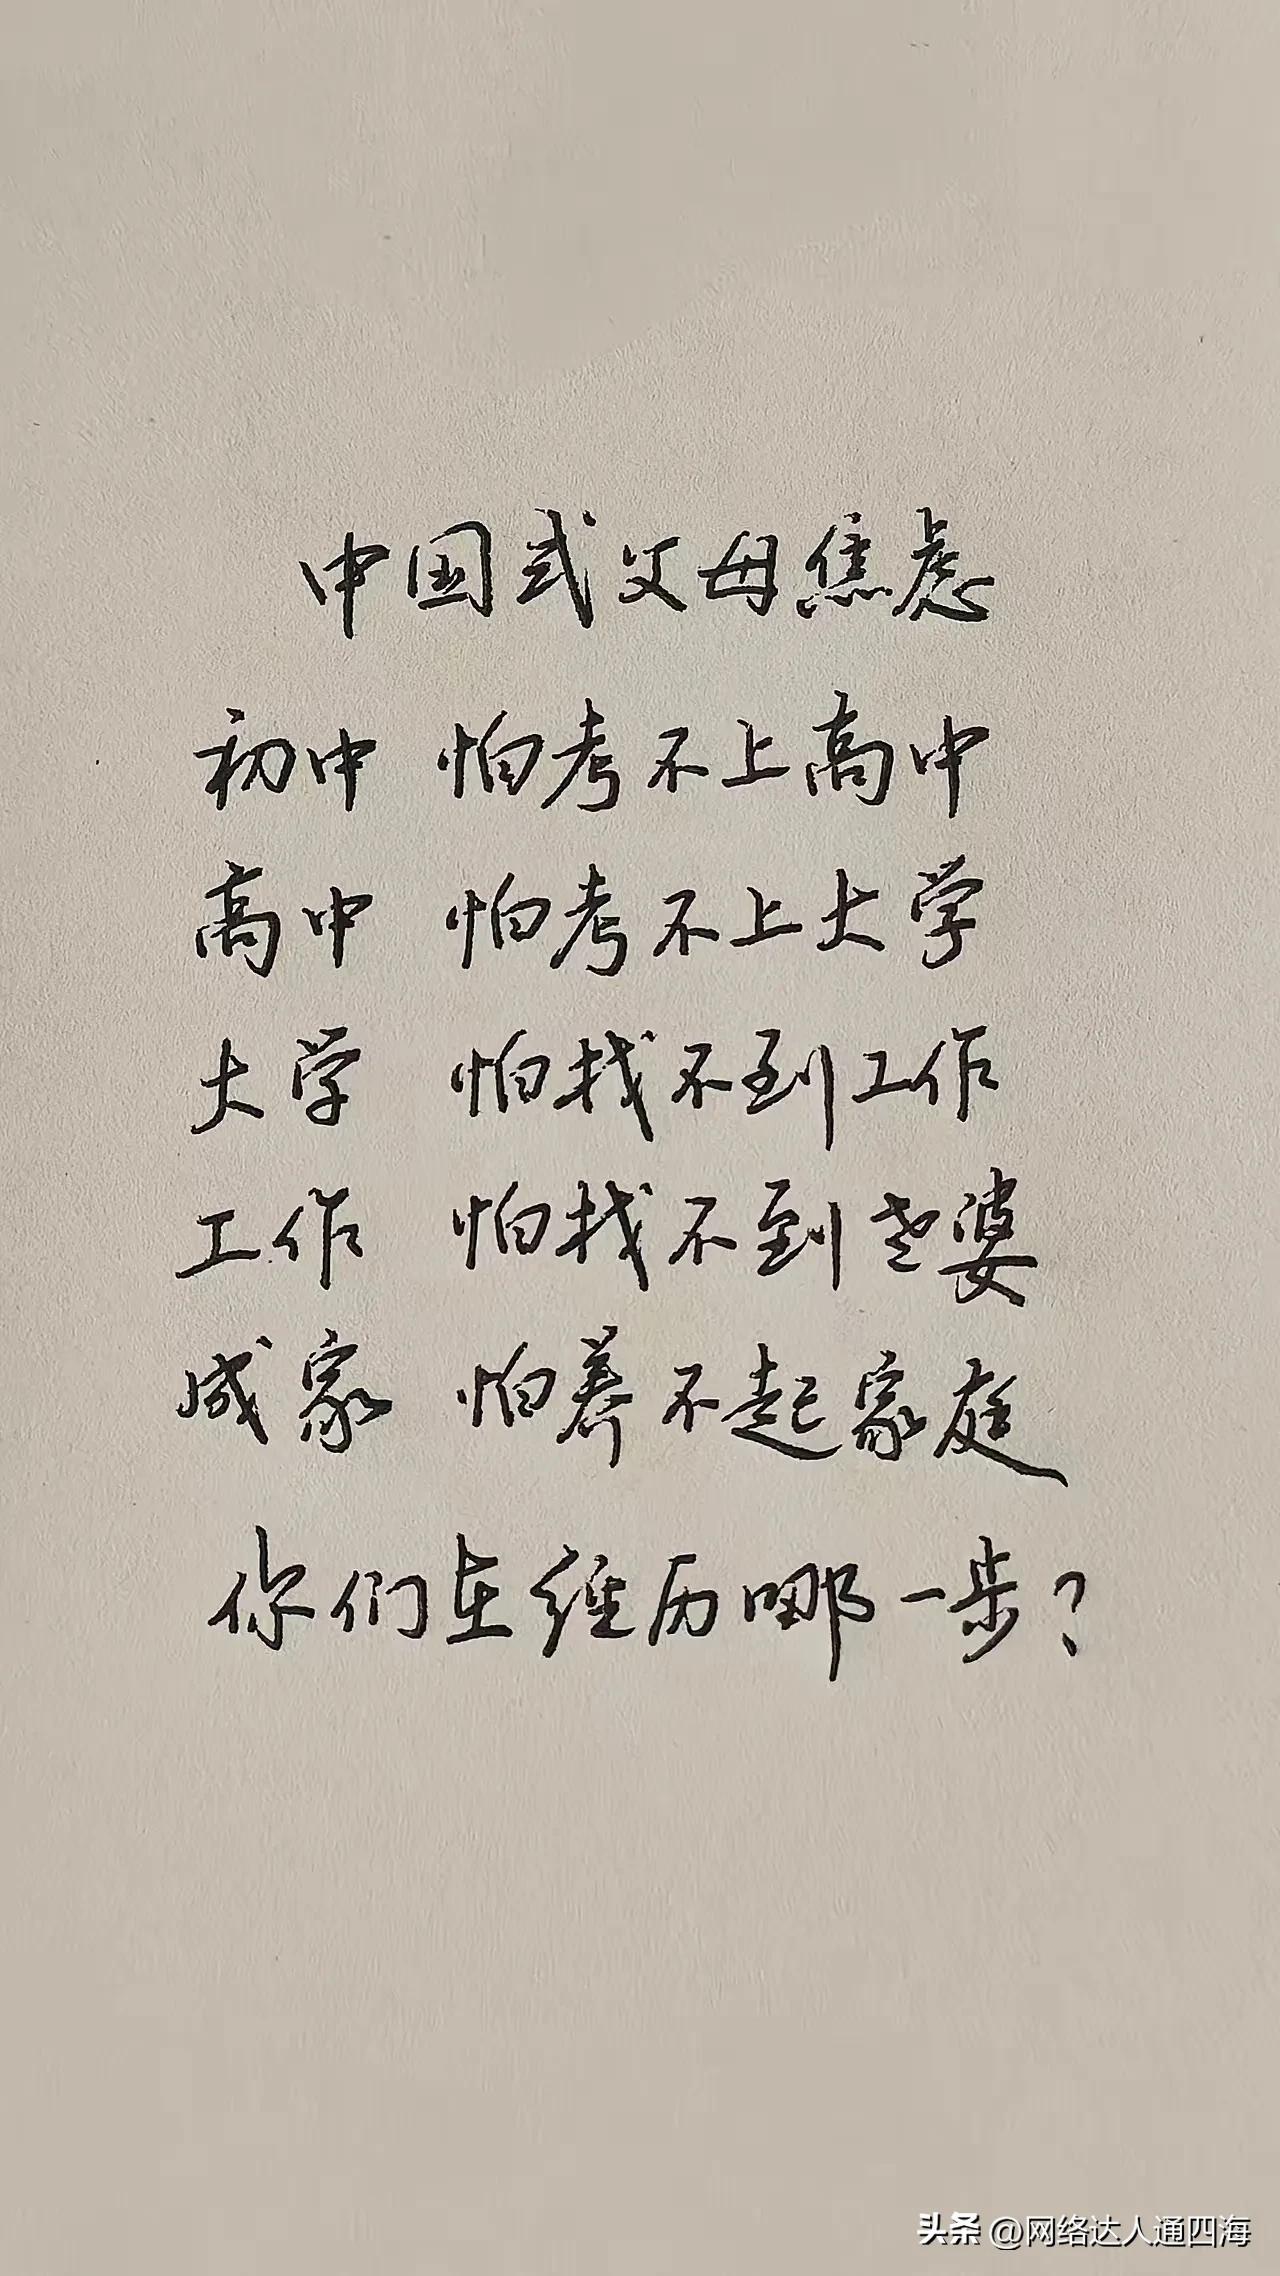 中国式父母焦虑
初中 怕考不上高中
高中 怕考不上大学
大学 怕找不到工作
工作 怕找不到老婆
成家 怕养不起家庭
你们在经历哪一步?
头条 @网络达人通四海